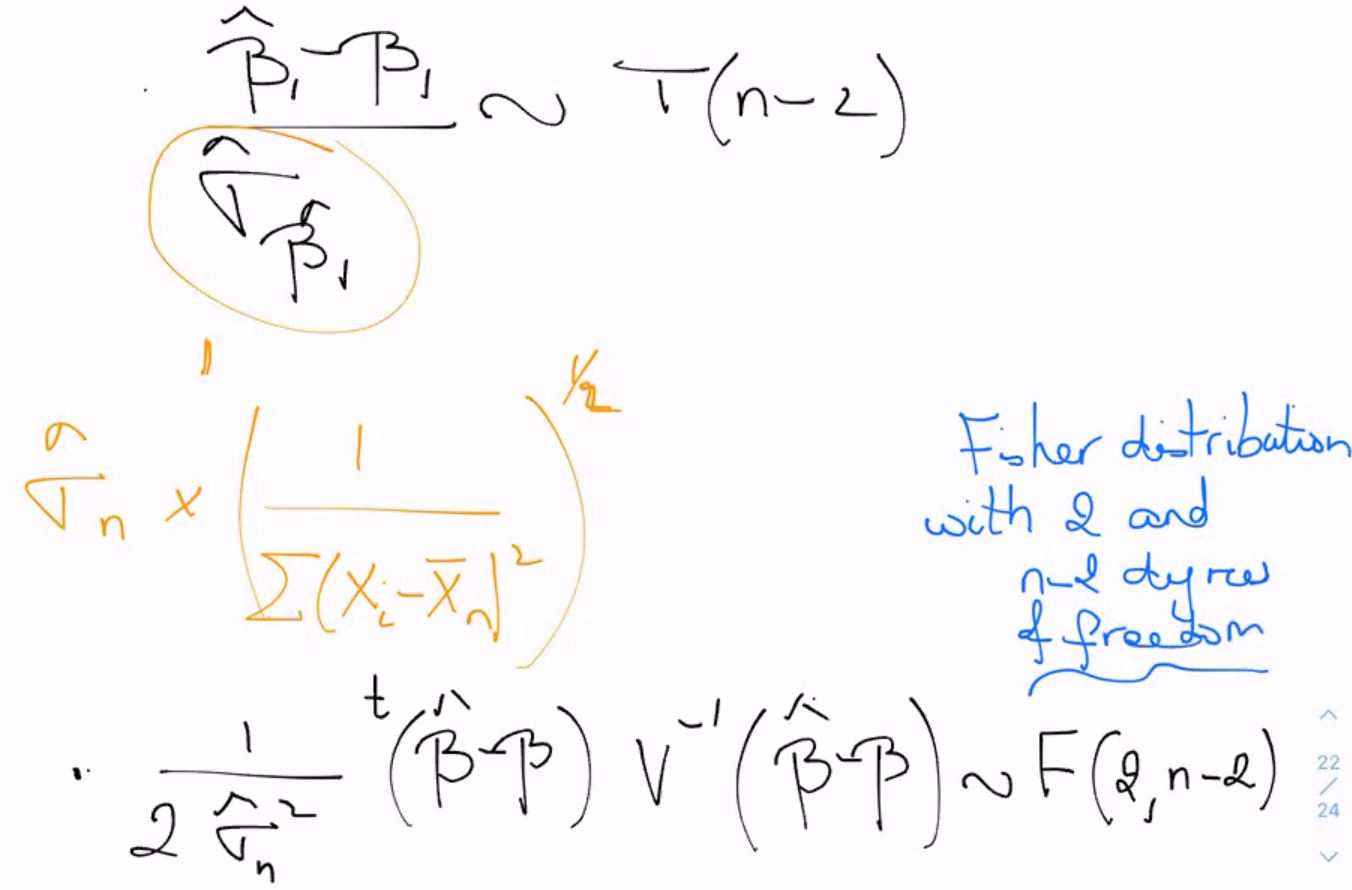 (β̂₁ − β₁) / σ̂_β̂₁ ~ T(n−2)
σ̂ₙ × (1 / Σ(Xᵢ − X̄ₙ)²)^1/2
Fisher distribution
with 2 and
n−2 dgrees
of freedom
1 / (2 σ̂ₙ²) ᵗ(β̂ − β) V⁻¹ (β̂ − β) ~ F(2, n−2)
22
/
24